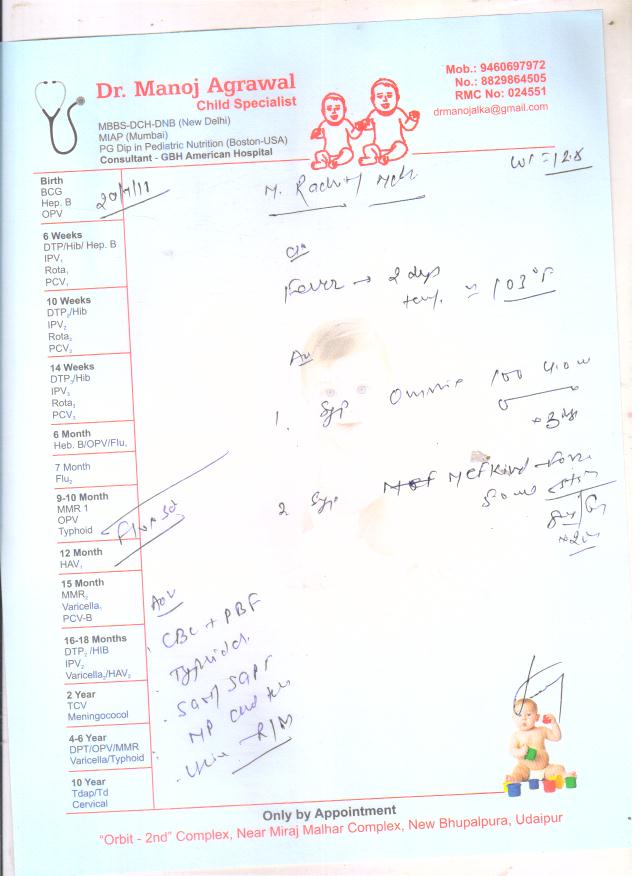 Dr. Manoj Agrawal
Child Specialist
MBBS-DCH-DNB (New Delhi)
MIAP (Mumbai)
PG Dip in Pediatric Nutrition (Boston-USA)
Consultant - GBH American Hospital
Mob.: 9460697972
No.: 8829864505
RMC No: 024551
drmanojalka@gmail.com
Birth
BCG
Hep. B
OPV
6 Weeks
DTP/Hib/ Hep. B
IPV₁
Rota₁
PCV₁
10 Weeks
DTP₂/Hib
IPV₂
Rota₂
PCV₂
14 Weeks
DTP₃/Hib
IPV₃
Rota₃
PCV₃
6 Month
Heb. B/OPV/Flu₁
7 Month
Flu₂
9-10 Month
MMR 1
OPV
Typhoid
12 Month
HAV₁
15 Month
MMR₂
Varicella₁
PCV-B
16-18 Months
DTP₂ /HIB
IPV₂
Varicella₂/HAV₂
2 Year
TCV
Meningococol
4-6 Year
DPT/OPV/MMR
Varicella/Typhoid
10 Year
Tdap/Td
Cervical
Wt = 12.8
Fever → 2 days
temp. = 103°F
1. Syp 100
2 Syp Mefkind forte
Adv
CBC + PBF
Typhidot
SGOT SGPT
MP card test
Urine R/M
Only by Appointment
"Orbit - 2nd" Complex, Near Miraj Malhar Complex, New Bhupalpura, Udaipur